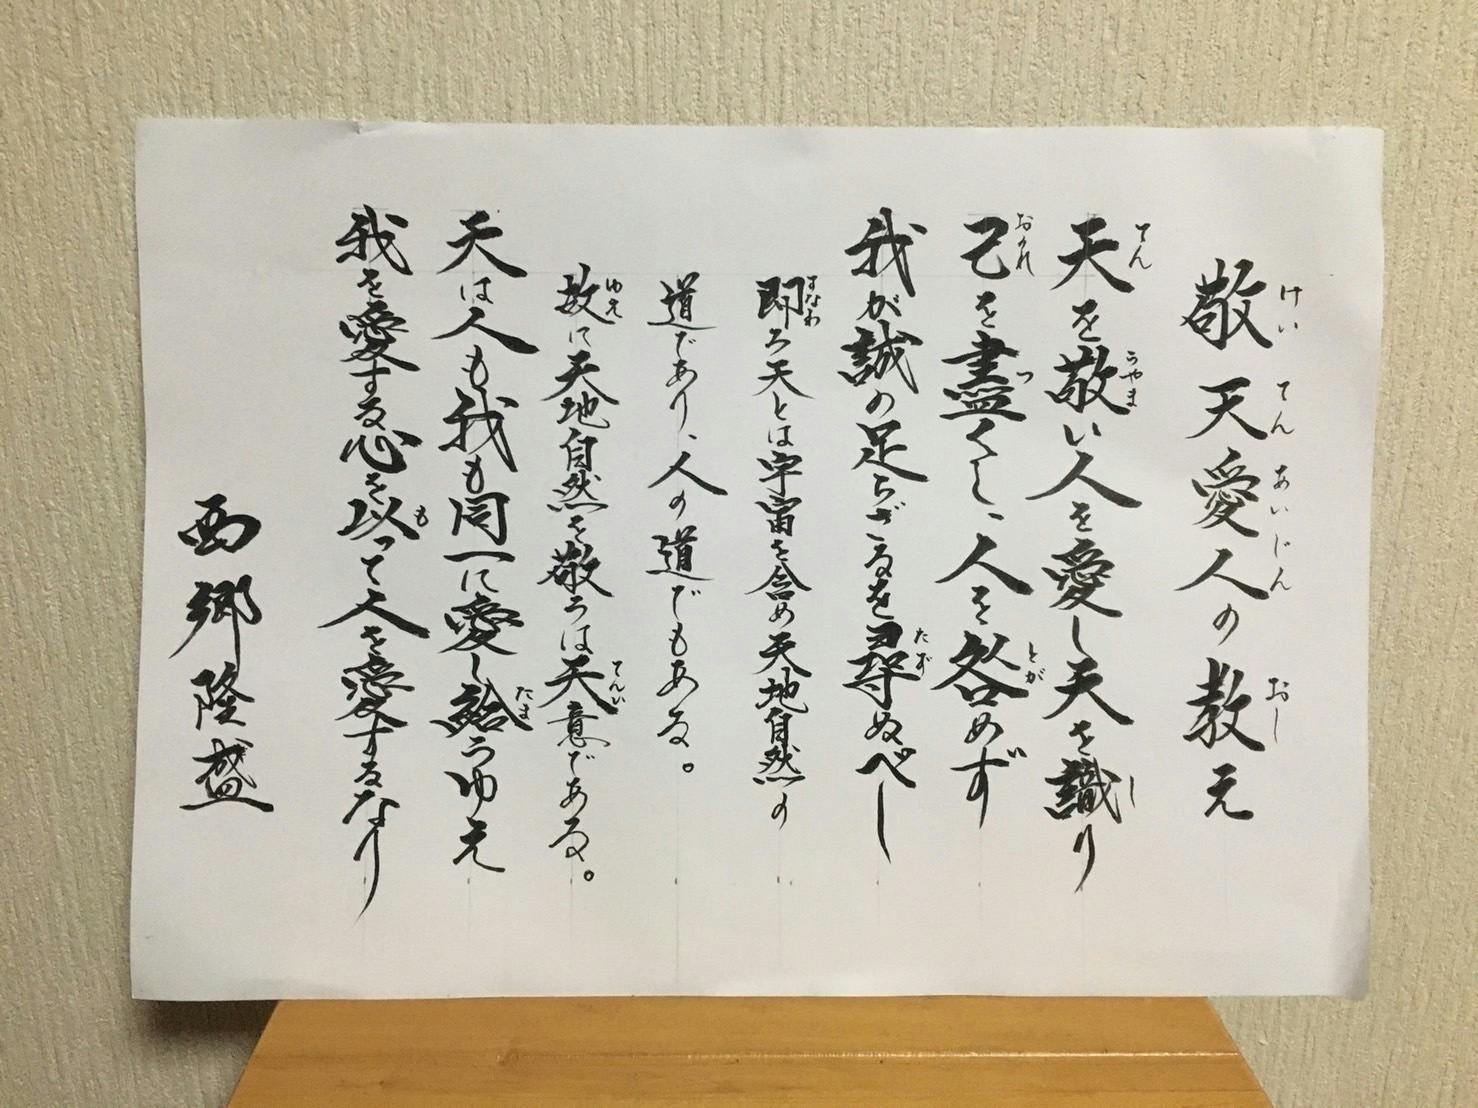 敬天愛人の教え
天を敬い人を愛し天を識り
己を盡くし、人を咎めず
我が誠の足らざるを尋ぬべし
即ち天とは宇宙を含め天地自然の
道であり、人の道でもある。
故に天地自然を敬うは天意である。
天は人も我も同一に愛し給うゆえ
我を愛する心を以って人を愛するなり
西郷隆盛